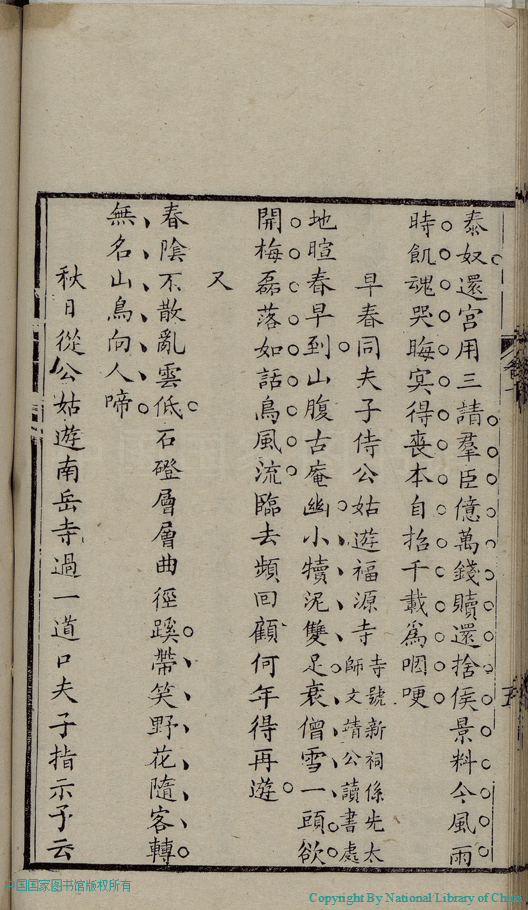 泰奴還宮用三請羣臣億萬錢贖還捨侯景料今風雨
時飢魂哭晦㝠得喪本自招千載爲咽哽
早春同夫子侍公姑遊福源寺寺號新祠係先太
師文靖公讀書處
地暄春早到山腹古庵幽小犢泥雙足衰僧雪一頭欲
開梅磊落如話鳥風流臨去頻回顧何年得再遊
又
春陰不散亂雲低石磴層層曲徑蹊帶笑野花隨客轉
無名山鳥向人啼
秋日從公姑遊南岳寺過一道口夫子指示予云
中国国家图书馆版权所有
Copyright By National Library of China